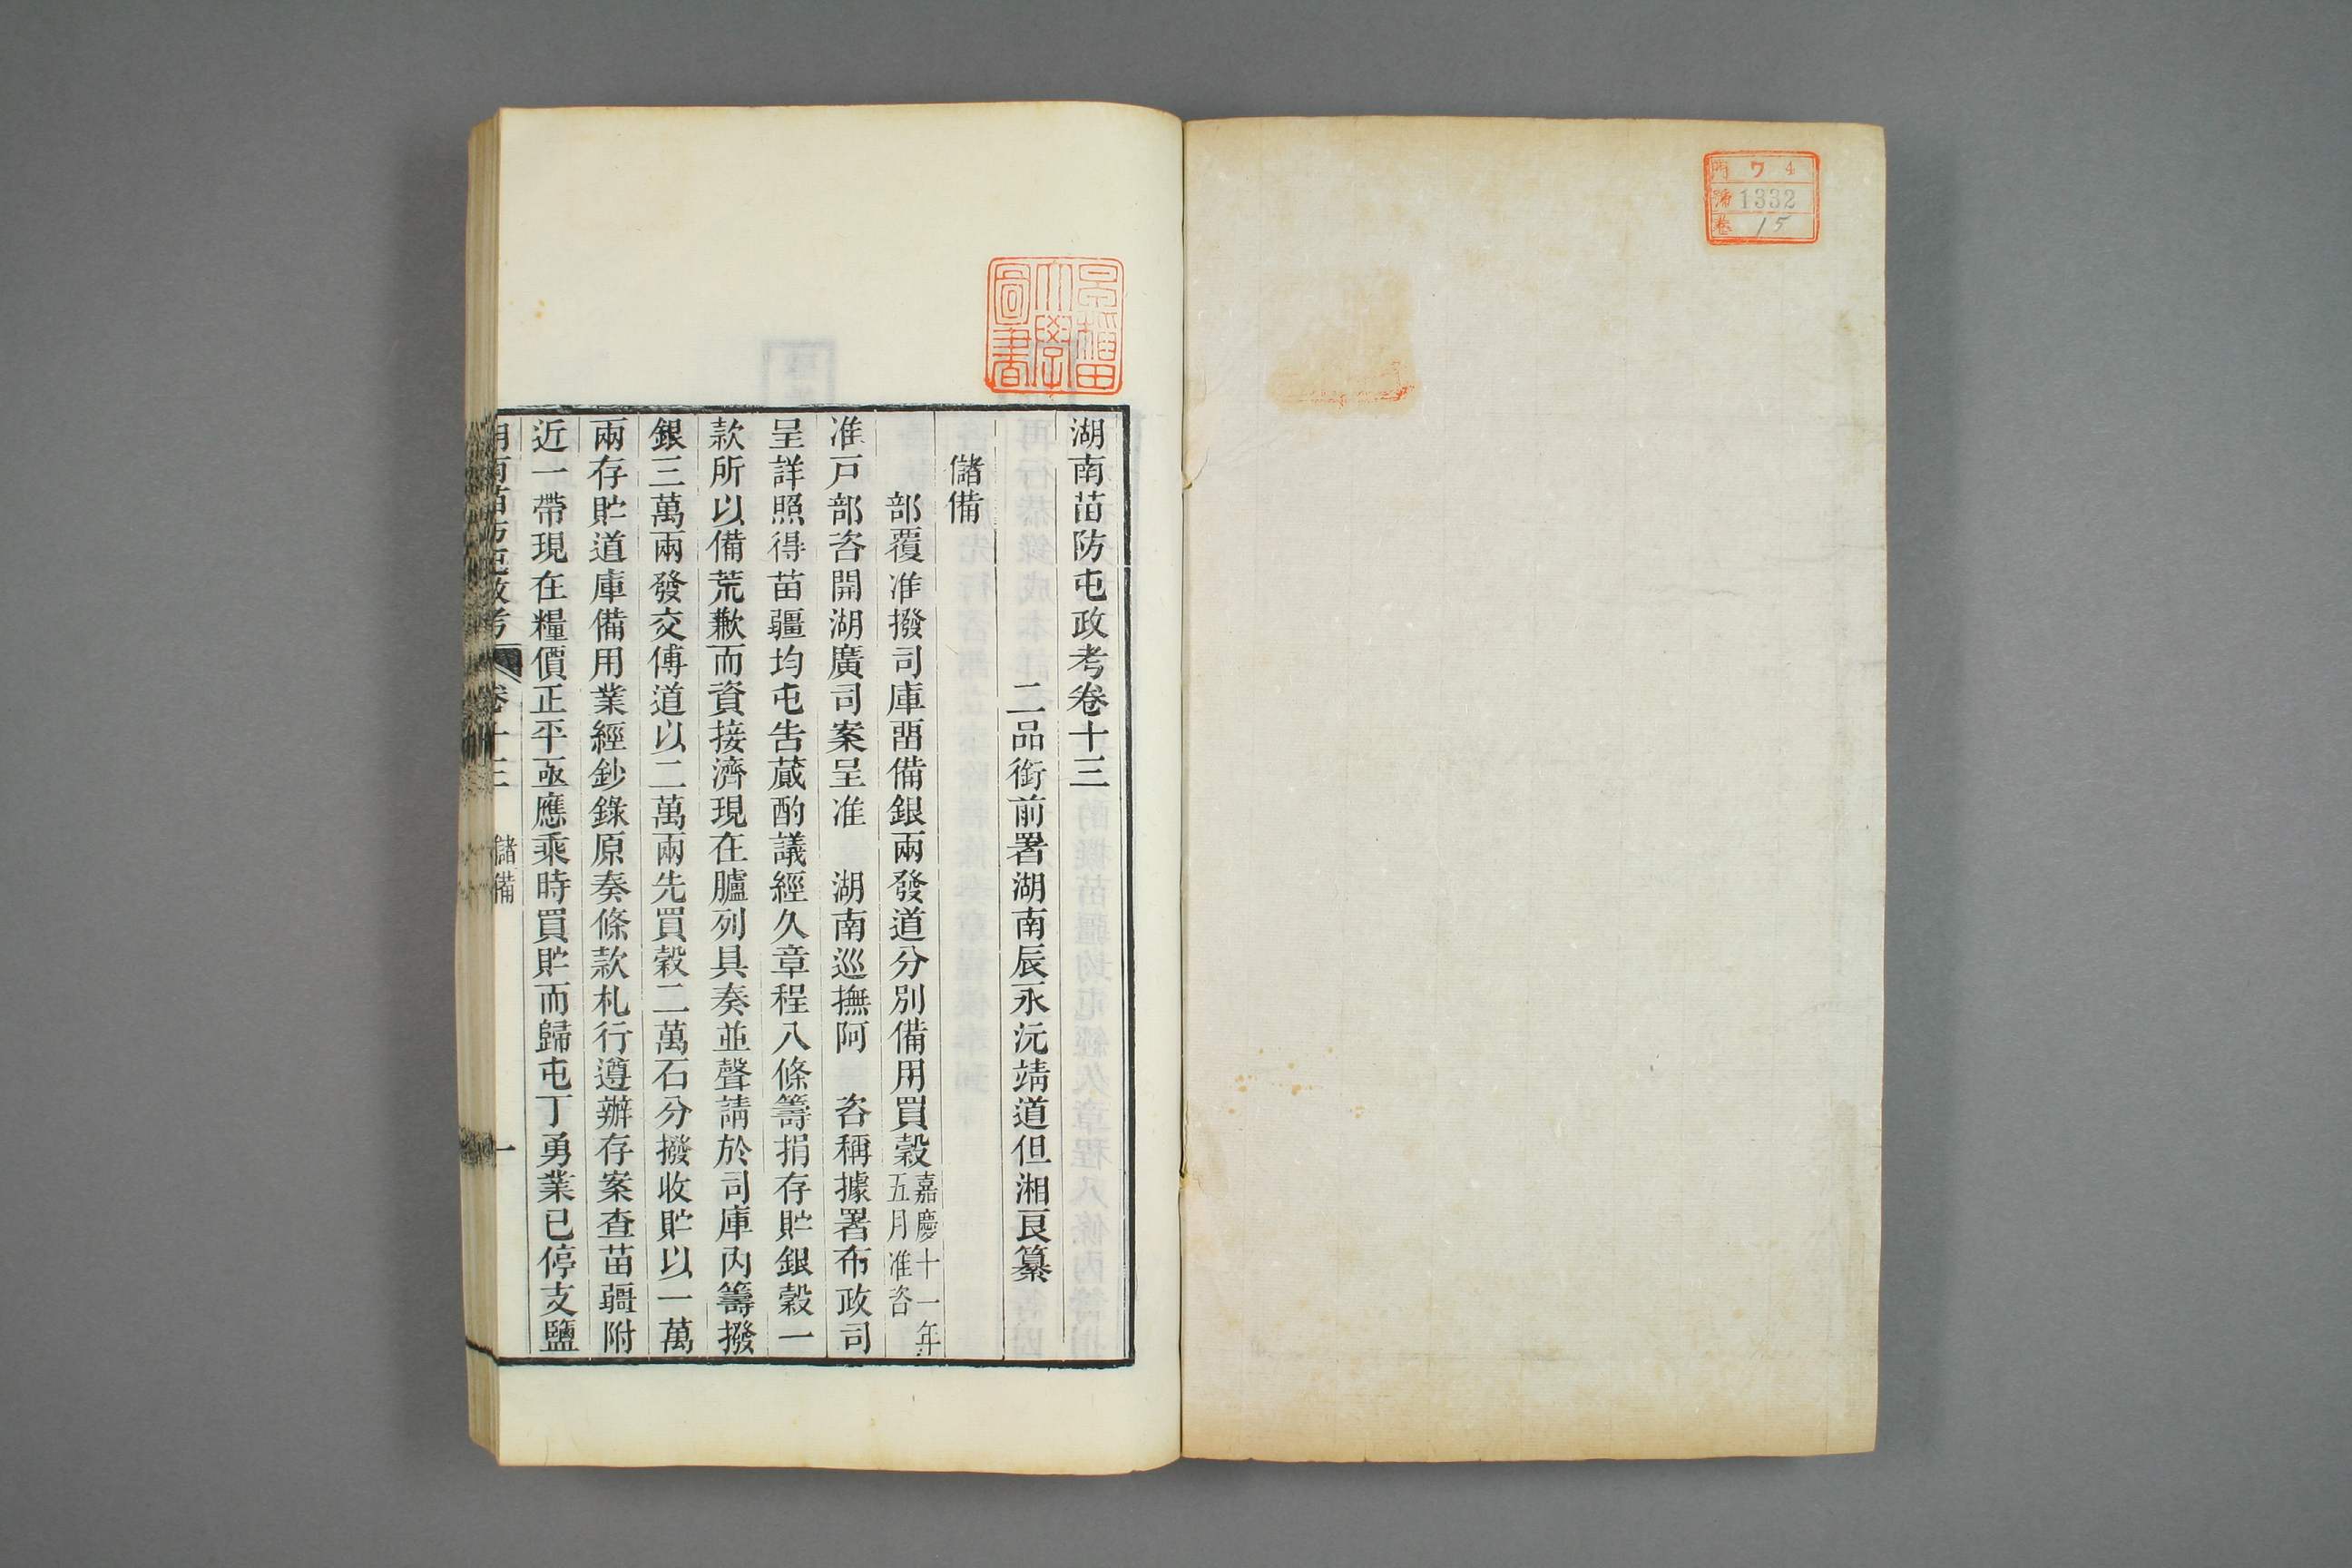 門 ワ 4
號 1332
卷 15
早稲田
大學
圖書
湖南苗防屯政考卷十三
二品銜前署湖南辰永沅靖道但湘良纂
儲備
部覆准撥司庫畱備銀兩發道分別備用買穀嘉慶十一年五月准咨
准戸部咨開湖廣司案呈准 湖南巡撫阿 咨稱據署布政司
呈詳照得苗疆均屯告蕆酌議經久章程八條籌捐存貯銀穀一
款所以備荒歉而資接濟現在臚列具奏並聲請於司庫內籌撥
銀三萬兩發交傅道以二萬兩先買穀二萬石分撥收貯以一萬
兩存貯道庫備用業經鈔錄原奏條款札行遵辦存案查苗疆附
近一帶現在糧價正平亟應乘時買貯而歸屯丁勇業已停支鹽
湖南苗防屯政考 卷十三 儲備 一